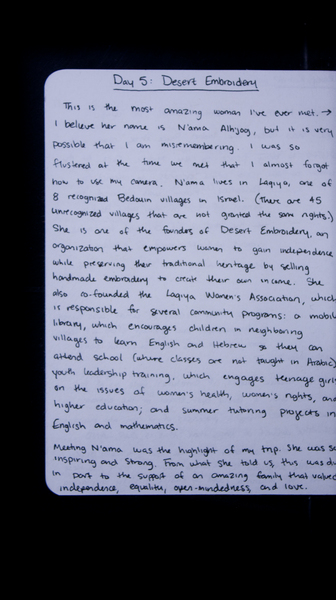 Day 5: Desert Embroidery
This is the most amazing woman I've ever met. →
I believe her name is N'ama Alhjoog, but it is very
possible that I am misremembering. I was so
flustered at the time we met that I almost forgot
how to use my camera. N'ama lives in Laqiya, one of
8 recognized Bedouin villages in Israel. (There are 45
unrecognized villages that are not granted the same rights.)
She is one of the founders of Desert Embroidery, an
organization that empowers women to gain independence
while preserving their traditional heritage by selling
handmade embroidery to create their own income. She
also co-founded the Laqiya Women's Association, which
is responsible for several community programs: a mobile
library, which encourages children in neighboring
villages to learn English and Hebrew so they can
attend school (where classes are not taught in Arabic);
youth leadership training, which engages teenage girls
on the issues of women's health, women's rights, and
higher education; and summer tutoring projects in
English and mathematics.
Meeting N'ama was the highlight of my trip. She was so
inspiring and strong. From what she told us, this was due
in part to the support of an amazing family that values
independence, equality, open-mindedness, and love.